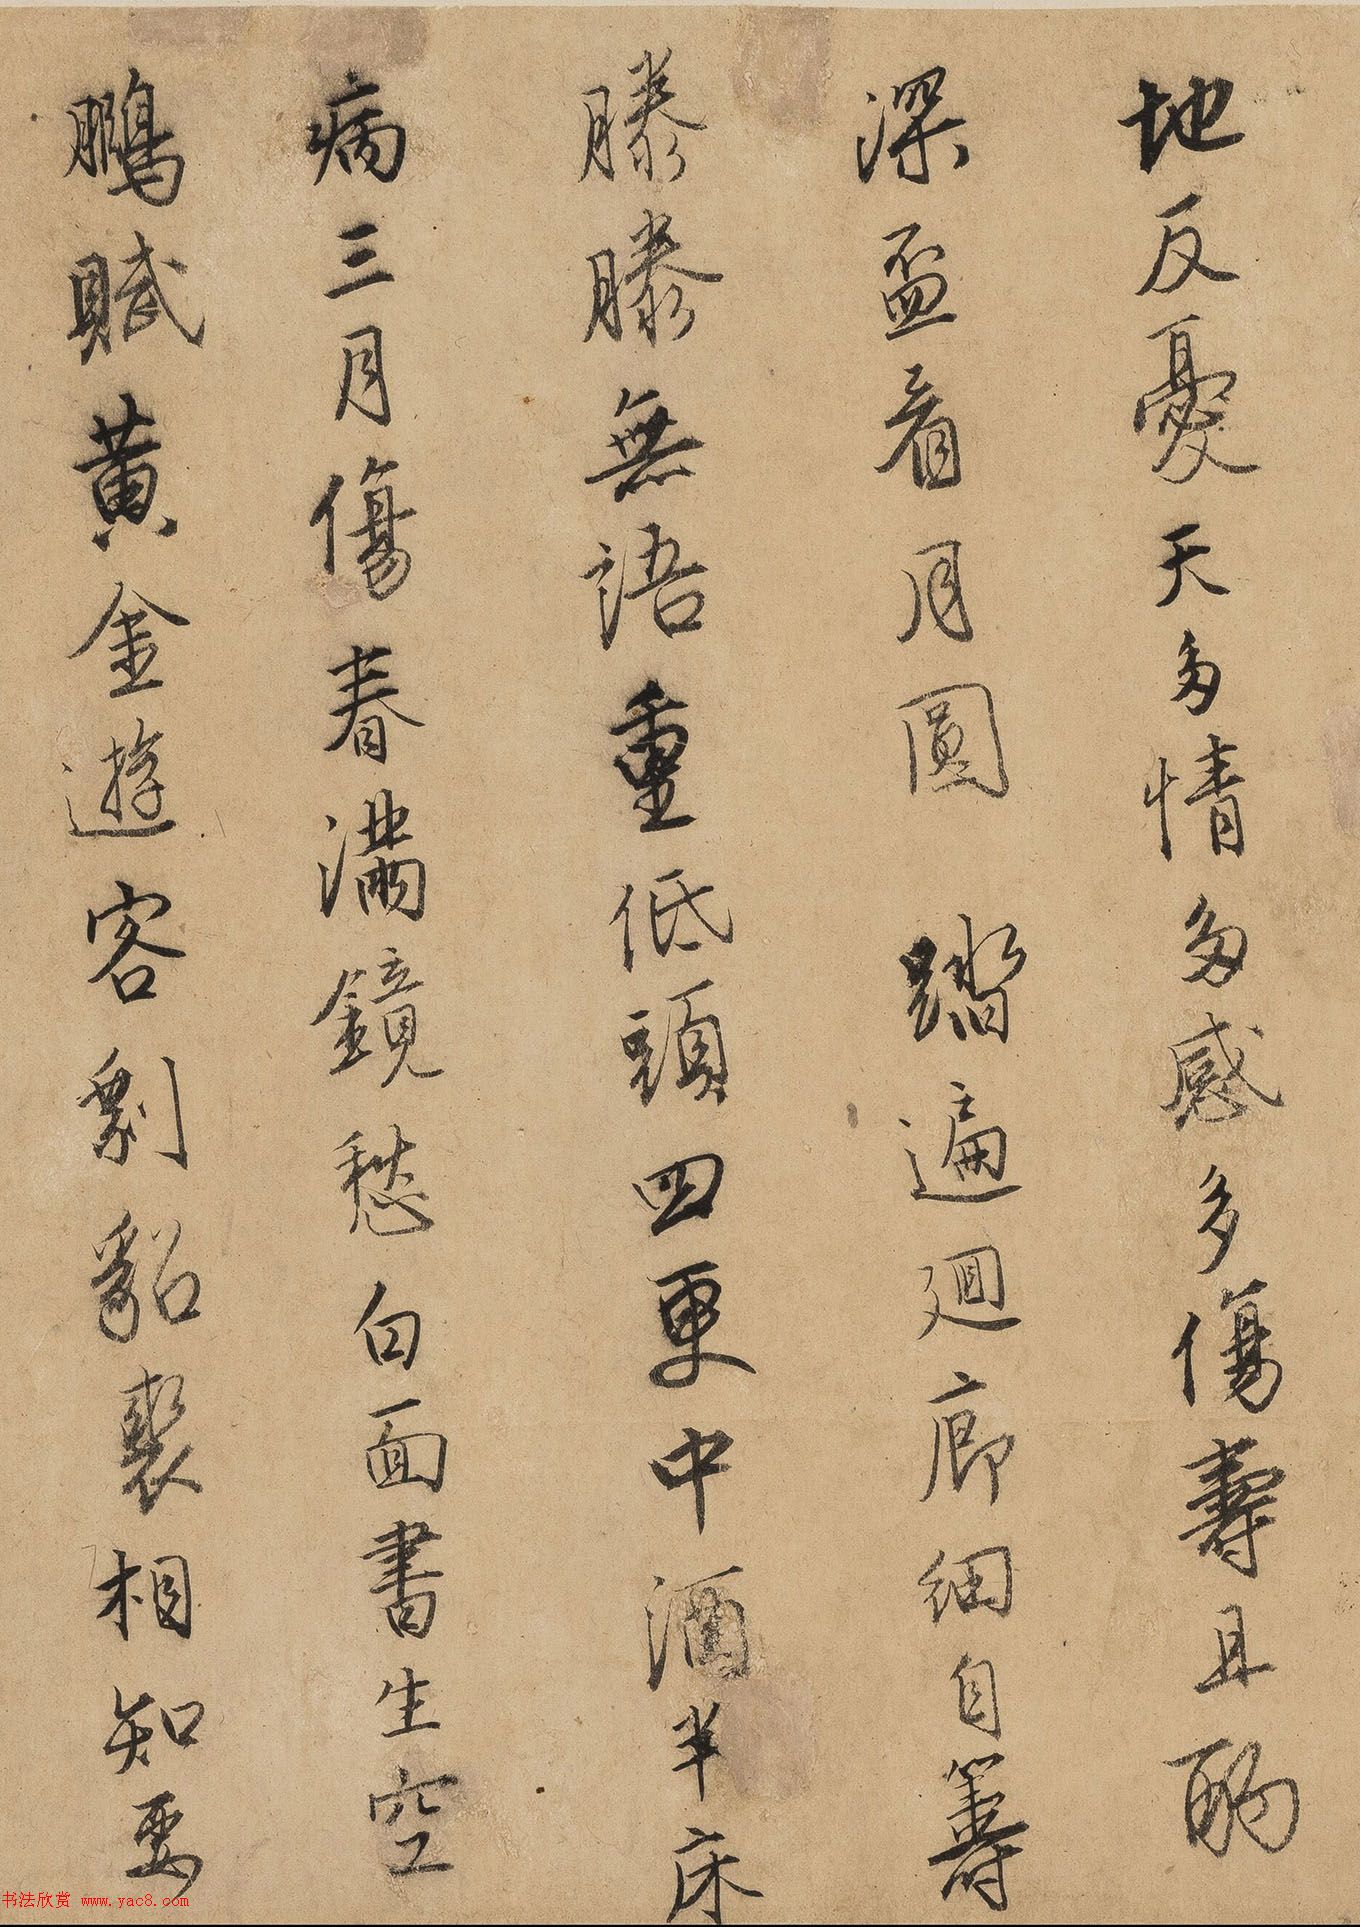 地反憂天多情多感多傷壽且酌
深盃看月圓 踏遍廻廊細自籌
滕滕無語重低頭四更中酒半床
病三月傷春滿鏡愁白面書生空
鵩賦黃金遊客剩貂裘相知要
书法欣赏 www.yac8.com